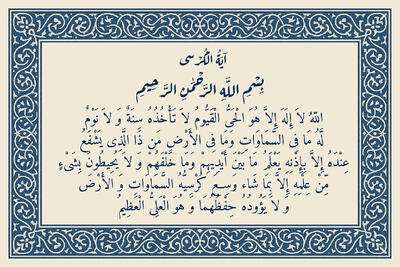 آيَةُ الْكُرْسِى
بِسْمِ اللَّهِ الرَّحْمَٰنِ الرَّحِيمِ
اللَّهُ لاَ إِلَهَ إِلاَّ هُوَ الْحَىُّ الْقَيُّومُ لاَ تَأْخُذُهُ سِنَةٌ وَ لاَ نَوْمٌ
لَّهُ مَا فِى السَّمَاوَاتِ وَمَا فِى الأَرْضِ مَن ذَا الَّذِى يَشْفَعُ
عِنْدَهُ إِلاَّ بِإِذْنِهِ يَعْلَمُ مَا بَيْنَ أَيْدِيهِمْ وَمَا خَلْفَهُمْ وَ لاَ يُحِيطُونَ بِشَىْءٍ
مِّنْ عِلْمِهِ إِلاَّ بِمَا شَاء وَسِعَ كُرْسِيُّهُ السَّمَاوَاتِ وَ الأَرْضَ
وَ لاَ يَؤُودُهُ حِفْظُهُمَا وَ هُوَ الْعَلِىُّ الْعَظِيمُ